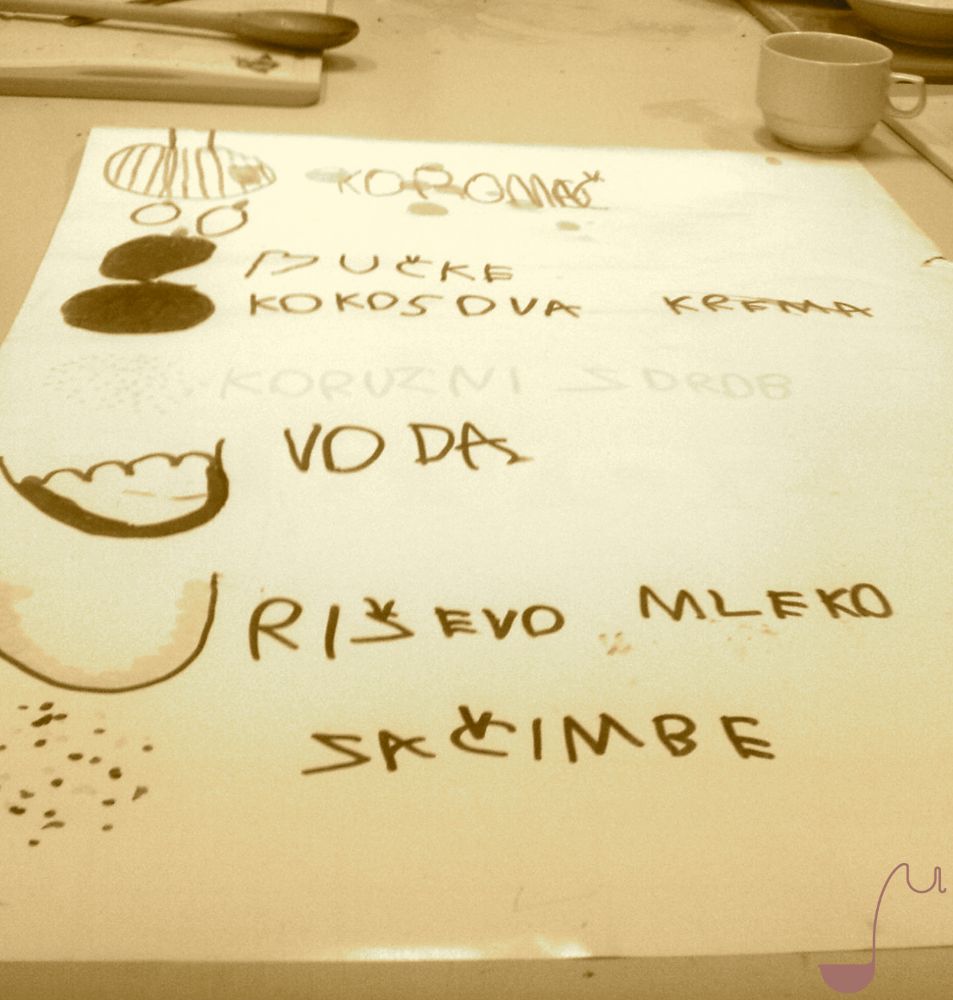 KOROMAČ
BUČKE
KOKOSOVA KREMA
KORUZNI SDROB
VODA
RIŠEVO MLEKO
SAČIMBE